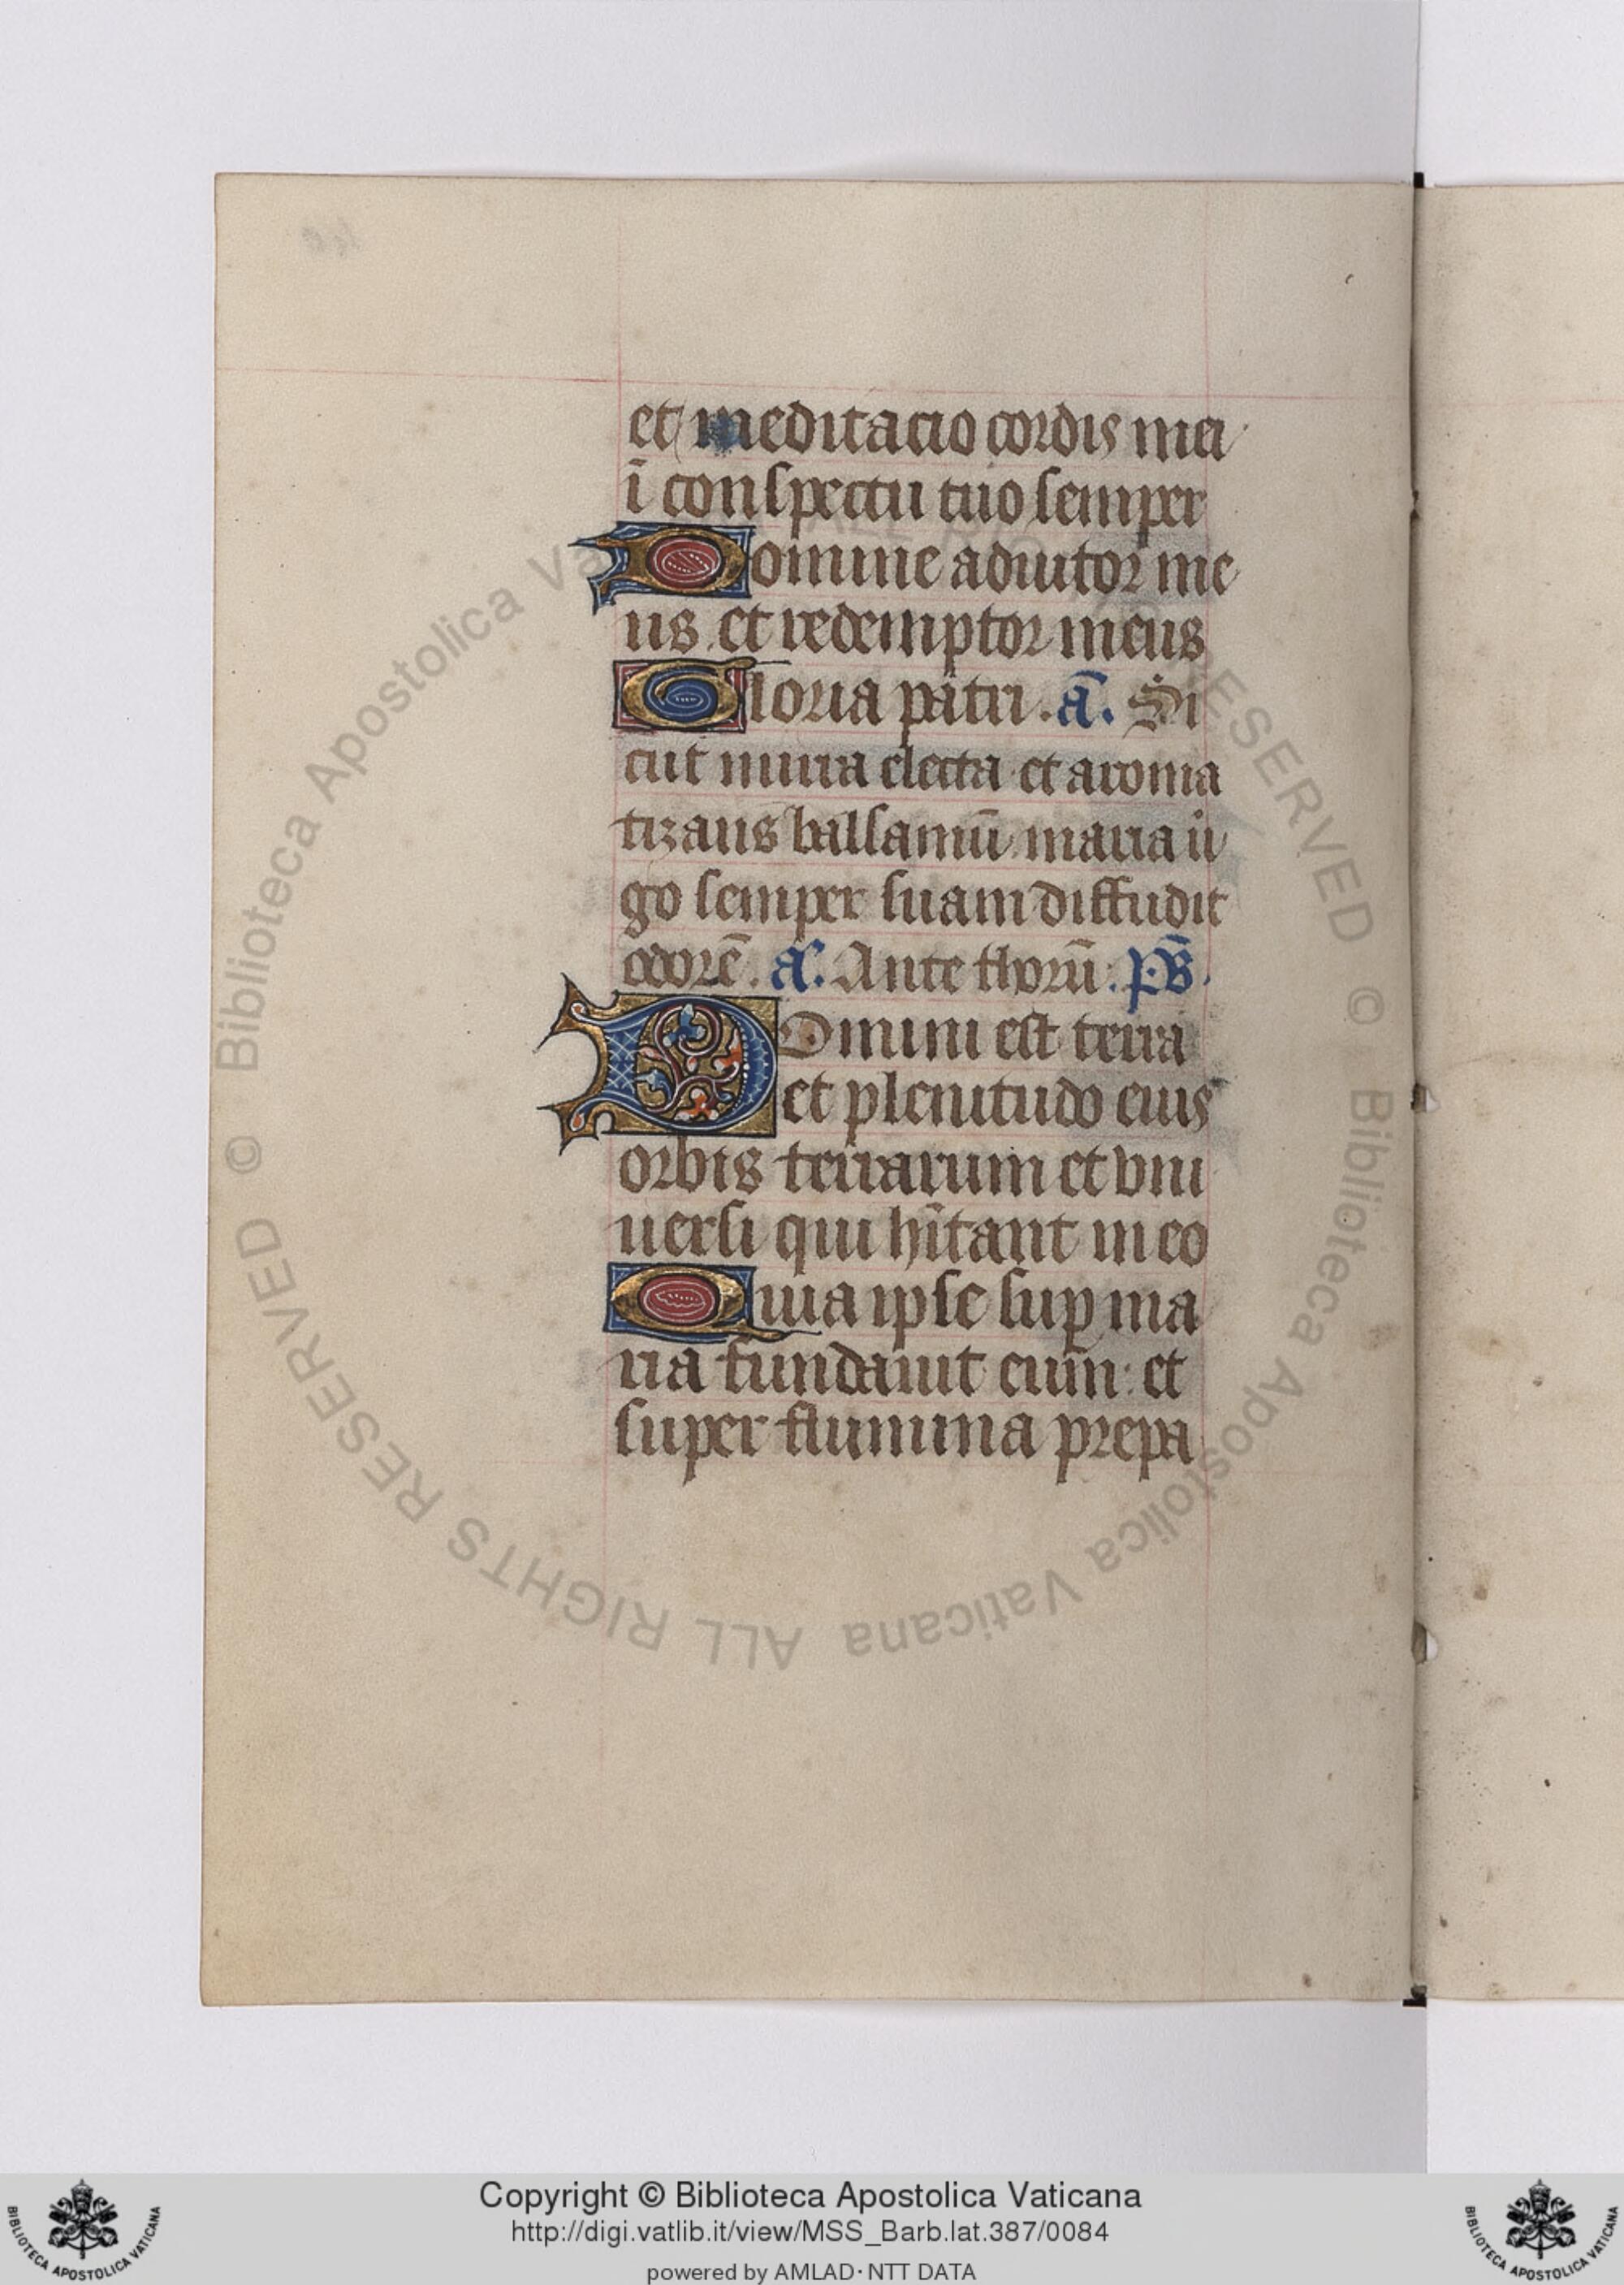 et meditacio cordis mei
ī conspectu tuo semper
Domine adiutor me
us. et redemptor meus
Gloria patri. a͞. Si
cut mirra electa et aroma
tizans balsamū maria ũ
go semper suam diffudit
odorē. a͞. Ante thorū. p̄s.
Domini est terra
et plenitudo eius
orbis terrarum et vni
uersi qui hītant in eo
Quia ipse suꝑ ma
ria fundauit eum: et
super flumina prepa
Copyright © Biblioteca Apostolica Vaticana
http://digi.vatlib.it/view/MSS_Barb.lat.387/0084
powered by AMLAD·NTT DATA
© Biblioteca Apostolica Vaticana ALL RIGHTS RESERVED
© Biblioteca Apostolica Vaticana ALL RIGHTS RESERVED
BIBLIOTECA APOSTOLICA VATICANA
BIBLIOTECA APOSTOLICA VATICANA